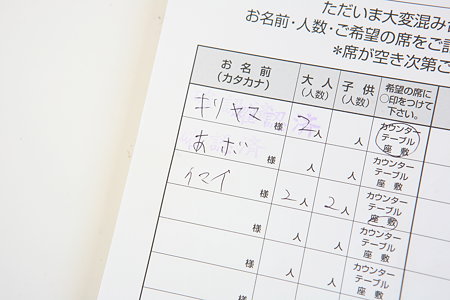 ただいま大変混み合
お名前・人数・ご希望の席をご記
*席が空き次第ご
お名前 大人 子供 希望の席に
(カタカナ) (人数) (人数) ○印をつけて
下さい。
キリヤマ 様 2人 人 カウンター
テーブル
座敷
あボ 様 人 人 カウンター
テーブル
座敷
イマイ 様 2人 2人 カウンター
テーブル
座敷
様 人 人 カウンター
テーブル
座敷
様 人 人 カウンター
テーブル